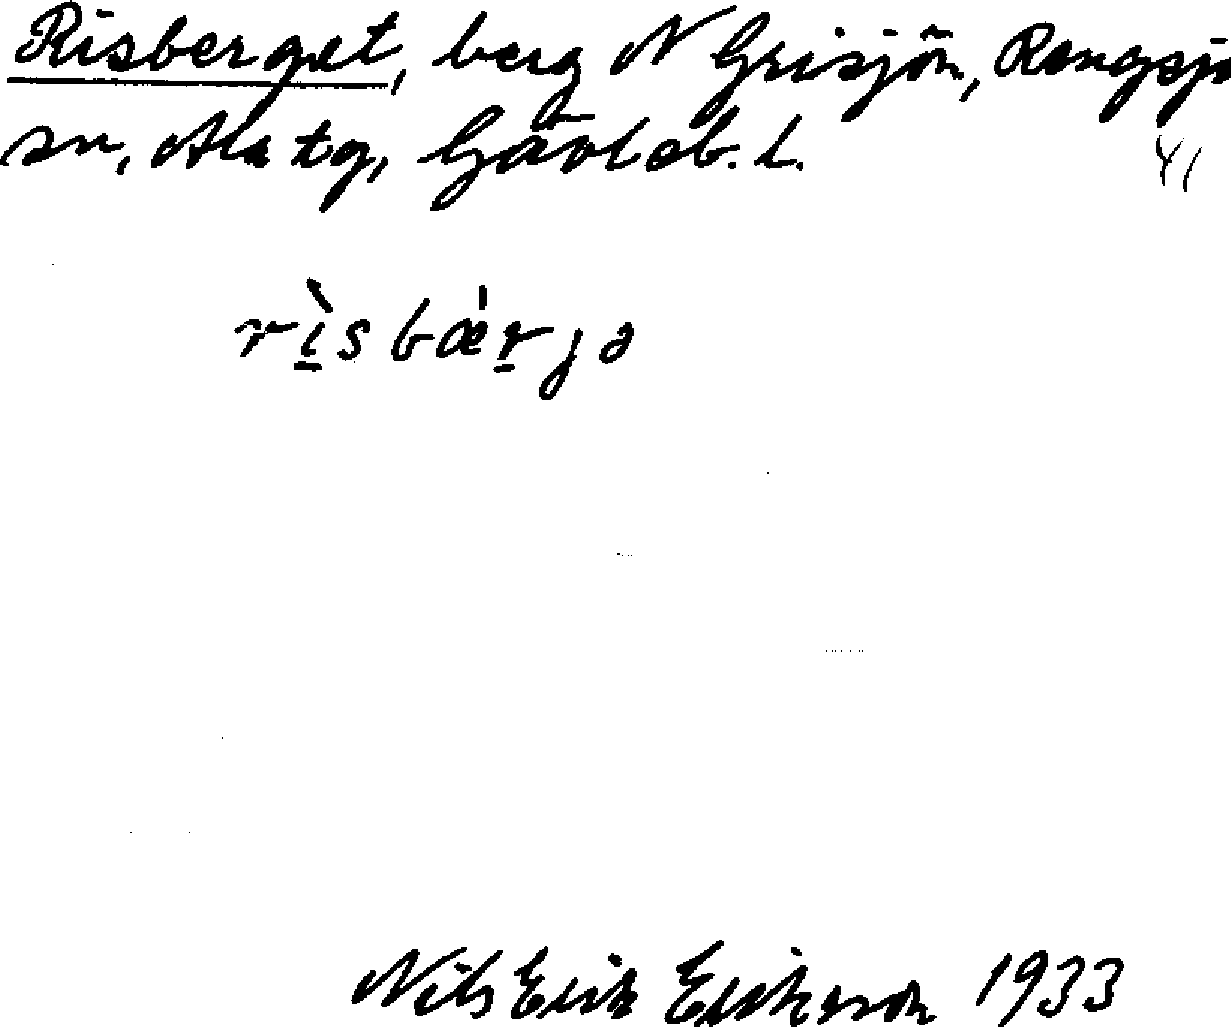 Risberget, berg N Grisjön, Rengsjö
sn, Ala tg, Gävleb. l.
41
rìsbær̠jə
Nils Erik Eriksson 1933